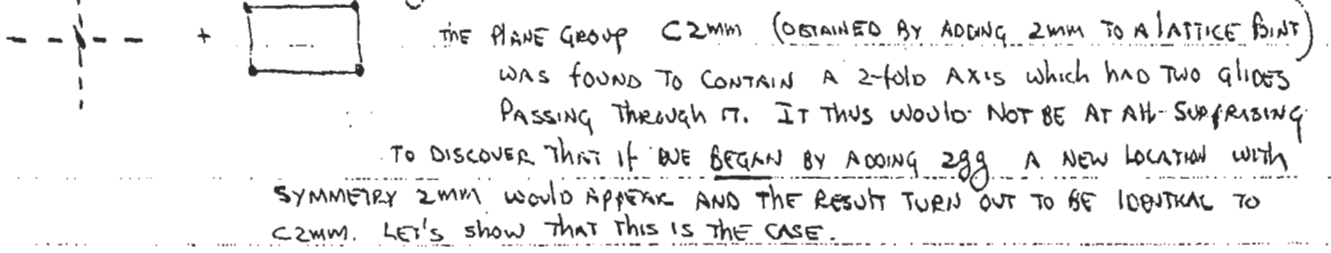 THE PLANE GROUP C2mm (OBTAINED BY ADDING 2mm TO A LATTICE POINT)
WAS FOUND TO CONTAIN A 2-fold AXIS WHICH HAD TWO GLIDES
PASSING THROUGH IT. IT THUS WOULD NOT BE AT ALL SURPRISING
TO DISCOVER THAT IF WE BEGAN BY ADDING 2gg A NEW LOCATION WITH
SYMMETRY 2MM WOULD APPEAR AND THE RESULT TURN OUT TO BE IDENTICAL TO
C2MM. LET'S SHOW THAT THIS IS THE CASE.